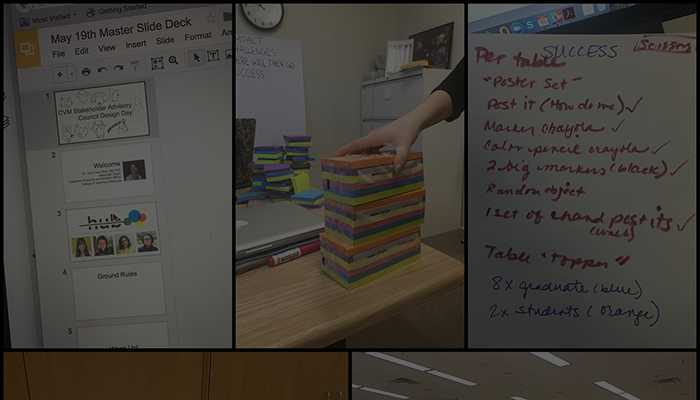 Most Visited
Getting Started
May 19th Master Slide Deck
File Edit View Insert Slide Format
1
CVM Stakeholder Advisory
Council Design Day
2
Welcome
3
hub
4
Ground Rules
5
MPACT
HALLENGES
HERE WILL THEY GO
UCCESS
SUCCESS
Scissors
Per table
"Poster Set"
Post it (How do me) ✓
Marker Crayola ✓
Color pencil crayola ✓
2 big markers (black) ✓
Random object
1 set of brand post its ✓
Table "topper"
8x graduate (blue)
2x students (orange)